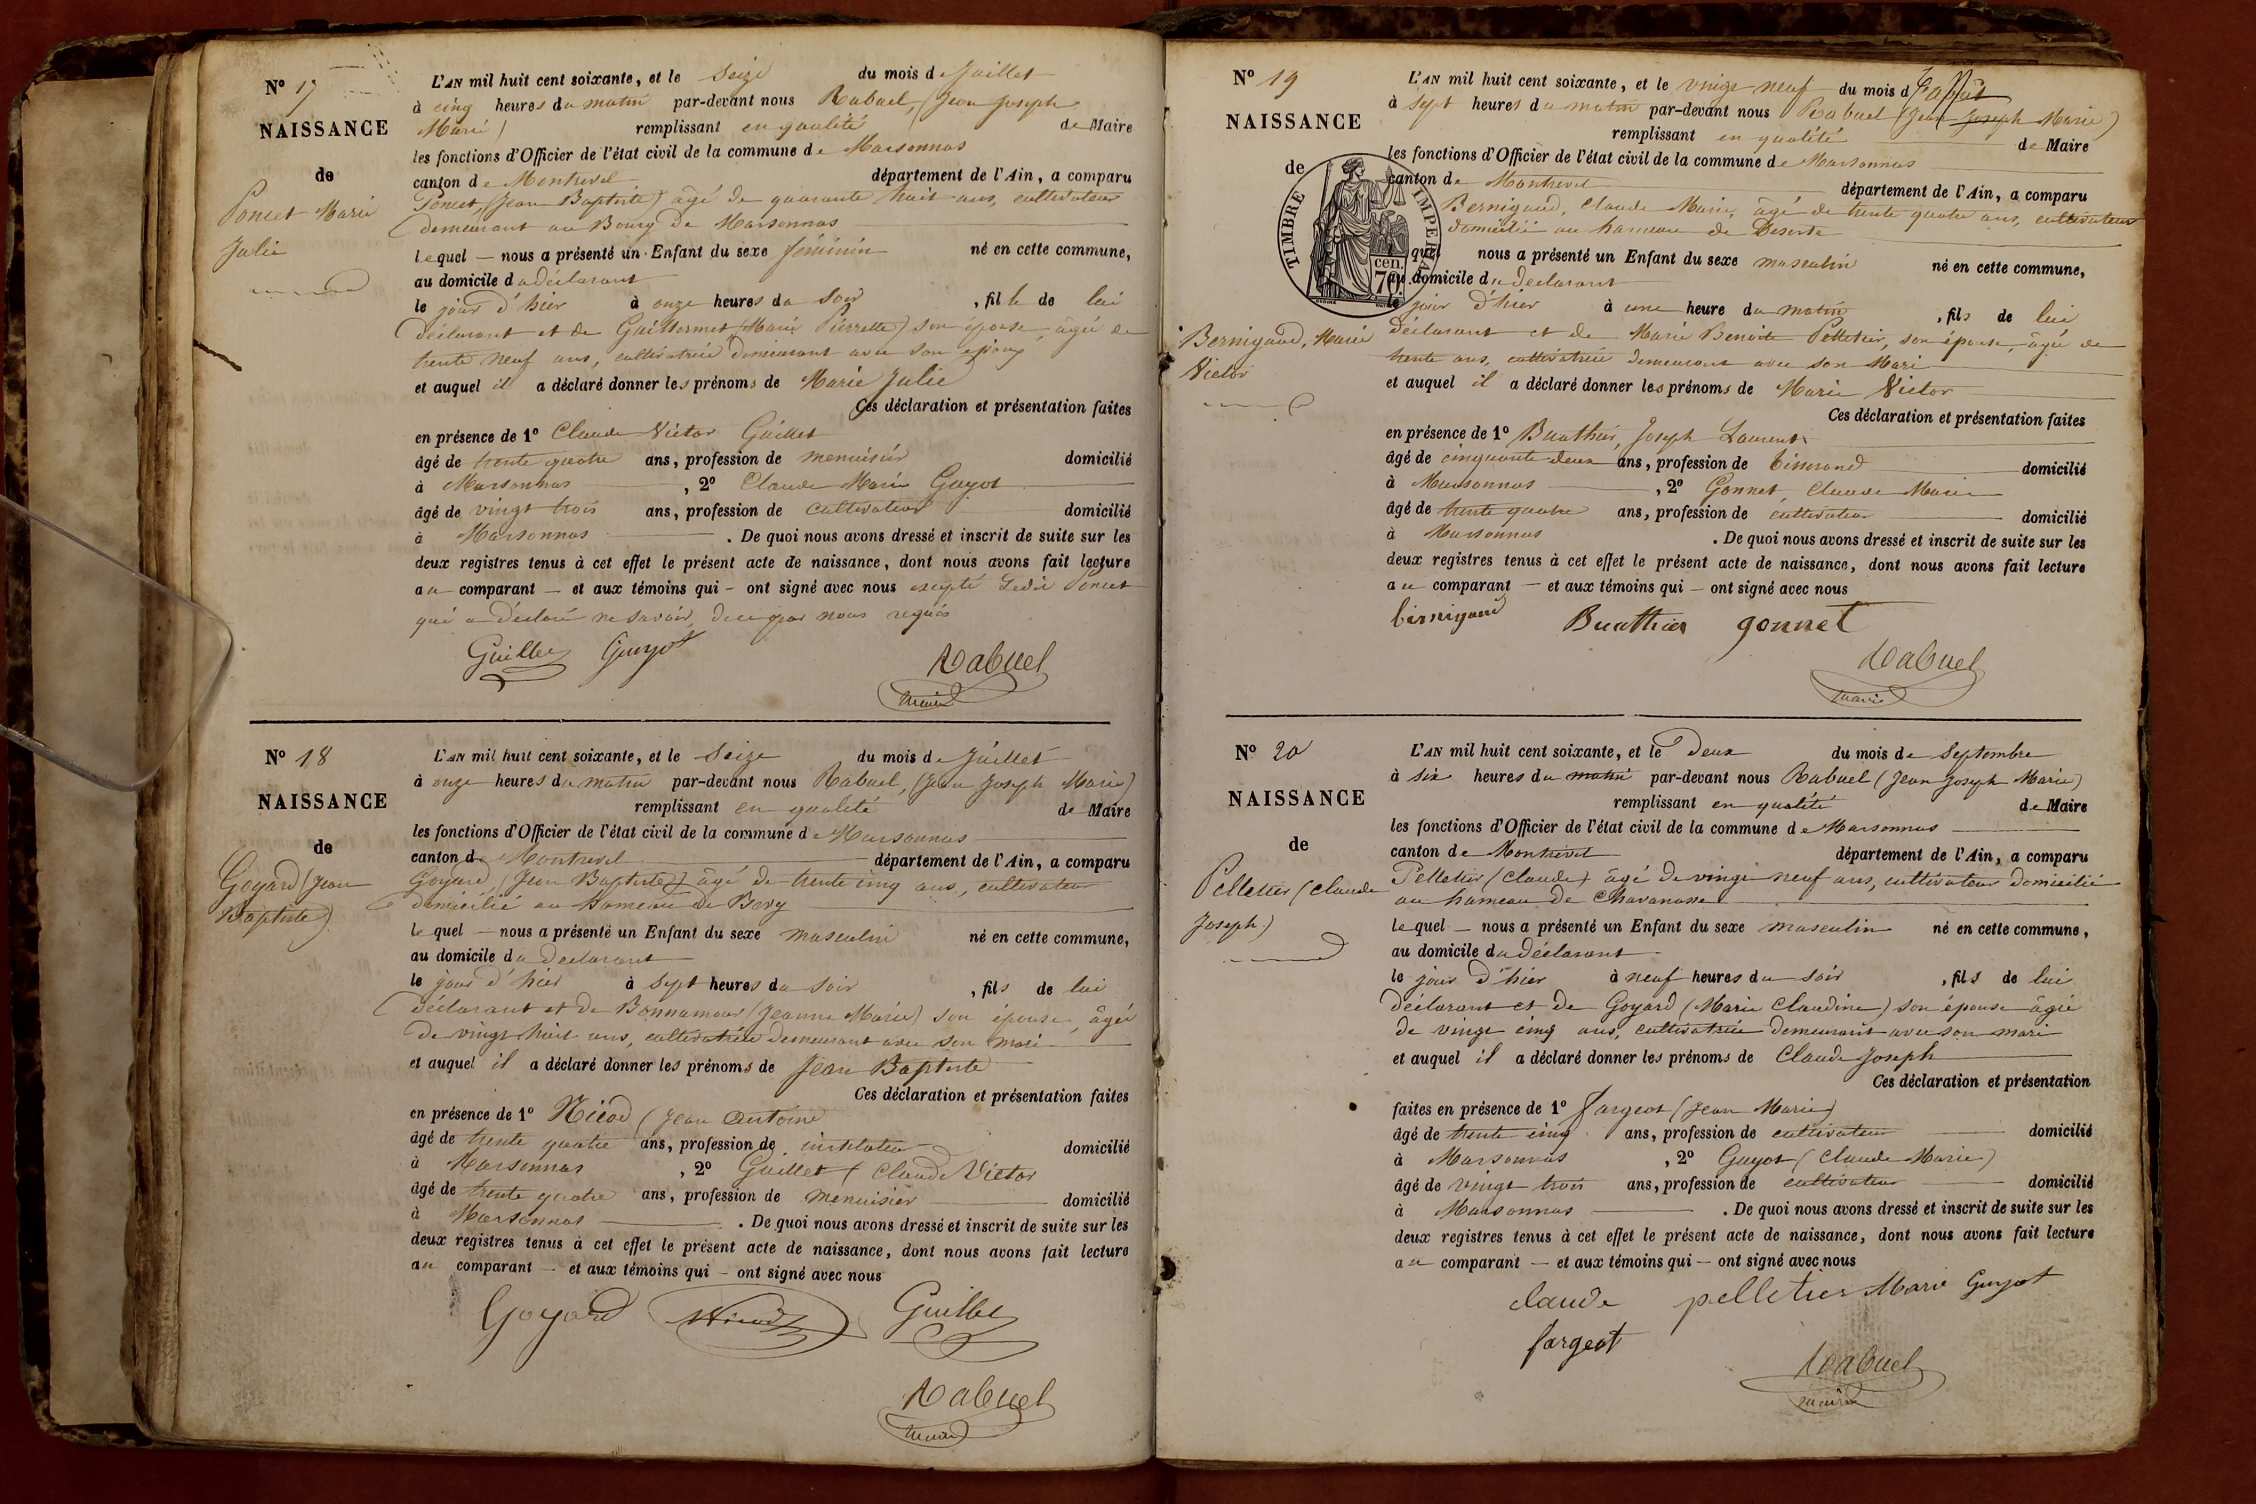 N° 17
NAISSANCE
de
Poncet Marie
Julie
L'AN mil huit cent soixante, et le Seize du mois de Juillet
à cinq heures du matin par-devant nous Rabuel, (Jean Joseph
Marie) remplissant en qualité de Maire
les fonctions d'Officier de l'état civil de la commune de Marsonnas
canton de Montrevel département de l'Ain, a comparu
Poncet, (Jean Baptiste) âgé de quarante huit ans, cultivateur
demeurant au Bourg de Marsonnas
lequel — nous a présenté un Enfant du sexe féminin né en cette commune,
au domicile du déclarant
le jour d'hier à onze heures du soir, fille de lui
déclarant et de Guillermet (Marie Pierrette) son épouse âgée de
trente neuf ans, cultivatrice demeurant avec son époux
et auquel il a déclaré donner les prénoms de Marie Julie
Ces déclaration et présentation faites
en présence de 1° Claude Victor Guillet
âgé de trente quatre ans, profession de menuisier domicilié
à Marsonnas, 2° Claude Marie Guyot
âgé de vingt trois ans, profession de cultivateur domicilié
à Marsonnas. De quoi nous avons dressé et inscrit de suite sur les
deux registres tenus à cet effet le présent acte de naissance, dont nous avons fait lecture
au comparant — et aux témoins qui — ont signé avec nous excepté ledit Poncet
qui a déclaré ne savoir, de ce par nous requis
Guillet Guyot
Rabuel
maire
N° 18
NAISSANCE
de
Goyard (Jean
Baptiste)
L'AN mil huit cent soixante, et le Seize du mois de Juillet
à onze heures du matin par-devant nous Rabuel, (Jean Joseph Marie)
remplissant en qualité de Maire
les fonctions d'Officier de l'état civil de la commune de Marsonnas
canton de Montrevel département de l'Ain, a comparu
Goyard, (Jean Baptiste) âgé de trente cinq ans, cultivateur
domicilié au hameau de Bovy
lequel — nous a présenté un Enfant du sexe masculin né en cette commune,
au domicile du déclarant
le jour d'hier à sept heures du soir, fils de lui
déclarant et de Bonnamour (Jeanne Marie) son épouse, âgée
de vingt huit ans, cultivatrice demeurant avec son mari
et auquel il a déclaré donner les prénoms de Jean Baptiste
Ces déclaration et présentation faites
en présence de 1° Nicod (Jean Antoine
âgé de trente quatre ans, profession de instituteur domicilié
à Marsonnas, 2° Guillet (Claude Victor
âgé de trente quatre ans, profession de menuisier domicilié
à Marsonnas. De quoi nous avons dressé et inscrit de suite sur les
deux registres tenus à cet effet le présent acte de naissance, dont nous avons fait lecture
au comparant — et aux témoins qui — ont signé avec nous
Goyard Nicod Guillet
Rabuel
maire
N° 19
NAISSANCE
de
TIMBRE IMPERIAL
70 cen.
Bernigaud, Marie
Victor
L'AN mil huit cent soixante, et le vingt neuf du mois d'août
à sept heures du matin par-devant nous Rabuel (Jean Joseph Marie)
remplissant en qualité de Maire
les fonctions d'Officier de l'état civil de la commune de Marsonnas
canton de Montrevel département de l'Ain, a comparu
Bernigaud, Claude Marie, âgé de trente quatre ans, cultivateur
domicilié au hameau de Deserte
quel nous a présenté un Enfant du sexe masculin né en cette commune,
au domicile du déclarant
le jour d'hier à une heure du matin, fils de lui
déclarant et de Marie Benoite Pelletier, son épouse, âgée de
trente ans, cultivatrice demeurant avec son Mari
et auquel il a déclaré donner les prénoms de Marie Victor
Ces déclaration et présentation faites
en présence de 1° Buathier, Joseph Laurent
âgé de cinquante deux ans, profession de tisserand domicilié
à Marsonnas, 2° Gonnet, Claude Marie
âgé de trente quatre ans, profession de cultivateur domicilié
à Marsonnas. De quoi nous avons dressé et inscrit de suite sur les
deux registres tenus à cet effet le présent acte de naissance, dont nous avons fait lecture
au comparant — et aux témoins qui — ont signé avec nous
bernigaud Buathier gonnet
Rabuel
maire
N° 20
NAISSANCE
de
Pelletier (Claude
Joseph)
L'AN mil huit cent soixante, et le Deux du mois de Septembre
à six heures du matin par-devant nous Rabuel (Jean Joseph Marie)
remplissant en qualité de Maire
les fonctions d'Officier de l'état civil de la commune de Marsonnas
canton de Montrevel département de l'Ain, a comparu
Pelletier (Claude) âgé de vingt neuf ans, cultivateur domicilié
au hameau de Chavanosse
lequel — nous a présenté un Enfant du sexe masculin né en cette commune,
au domicile du déclarant
le jour d'hier à neuf heures du soir, fils de lui
déclarant et de Goyard (Marie Claudine) son épouse âgée
de vingt cinq ans, cultivatrice demeurant avec son mari
et auquel il a déclaré donner les prénoms de Claude Joseph
Ces déclaration et présentation
faites en présence de 1° Fargeot (Jean Marie)
âgé de trente cinq ans, profession de cultivateur domicilié
à Marsonnas, 2° Guyot (Claude Marie)
âgé de vingt trois ans, profession de cultivateur domicilié
à Marsonnas. De quoi nous avons dressé et inscrit de suite sur les
deux registres tenus à cet effet le présent acte de naissance, dont nous avons fait lecture
au comparant — et aux témoins qui — ont signé avec nous
claude pelletier Marie Guyot
fargeot
Rabuel
maire